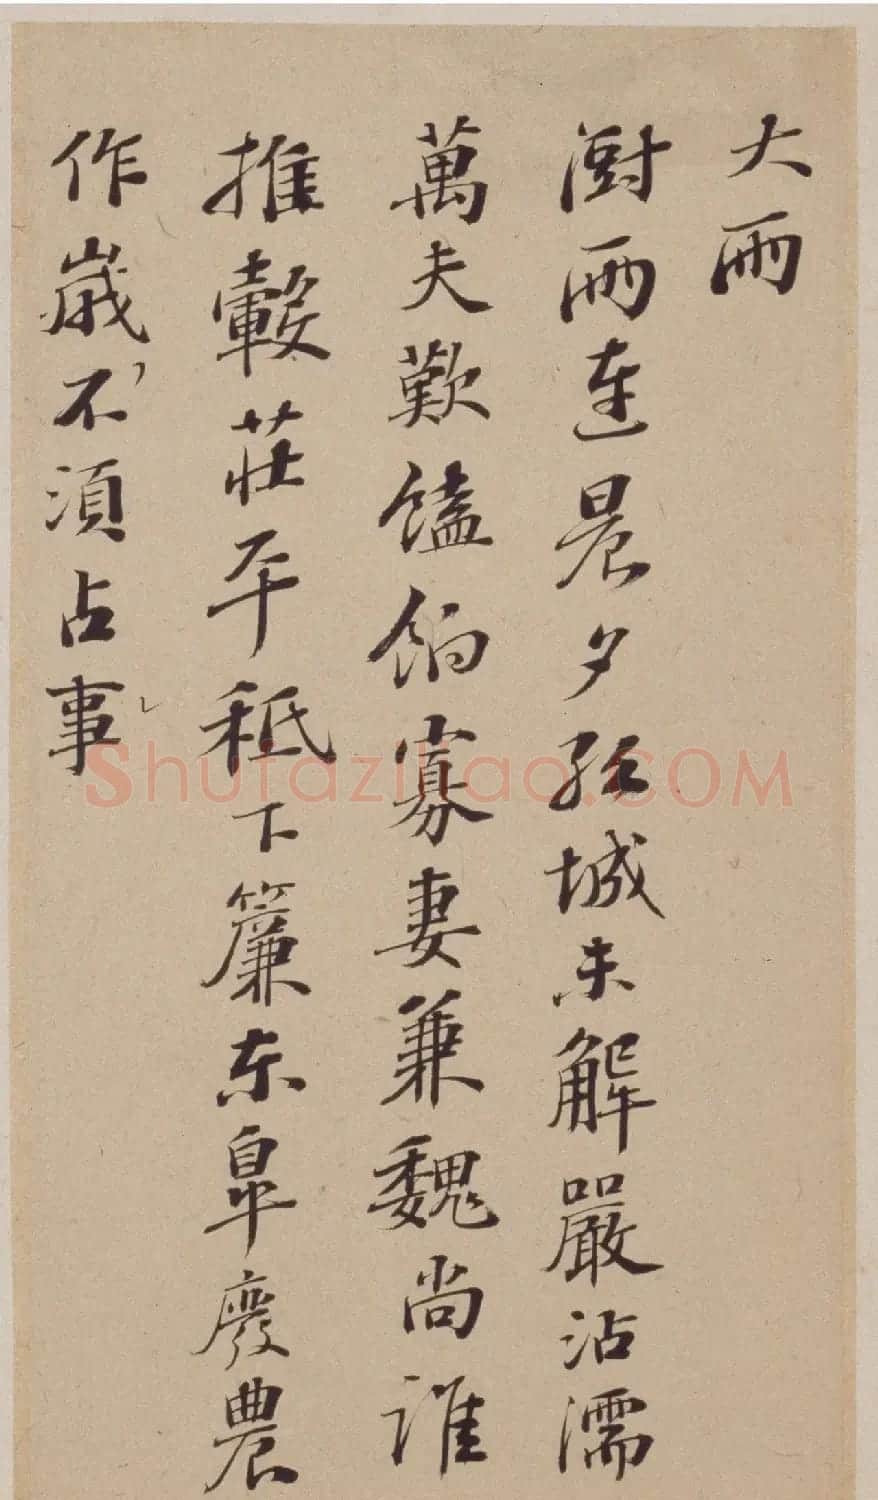 大雨
澍雨連晨夕孤城未解嚴沾濡
萬夫歎饁餉寡妻兼魏尚誰
推轂莊平秪下簾東皋廢農
作歲不須占事
Shufaziliao.COM